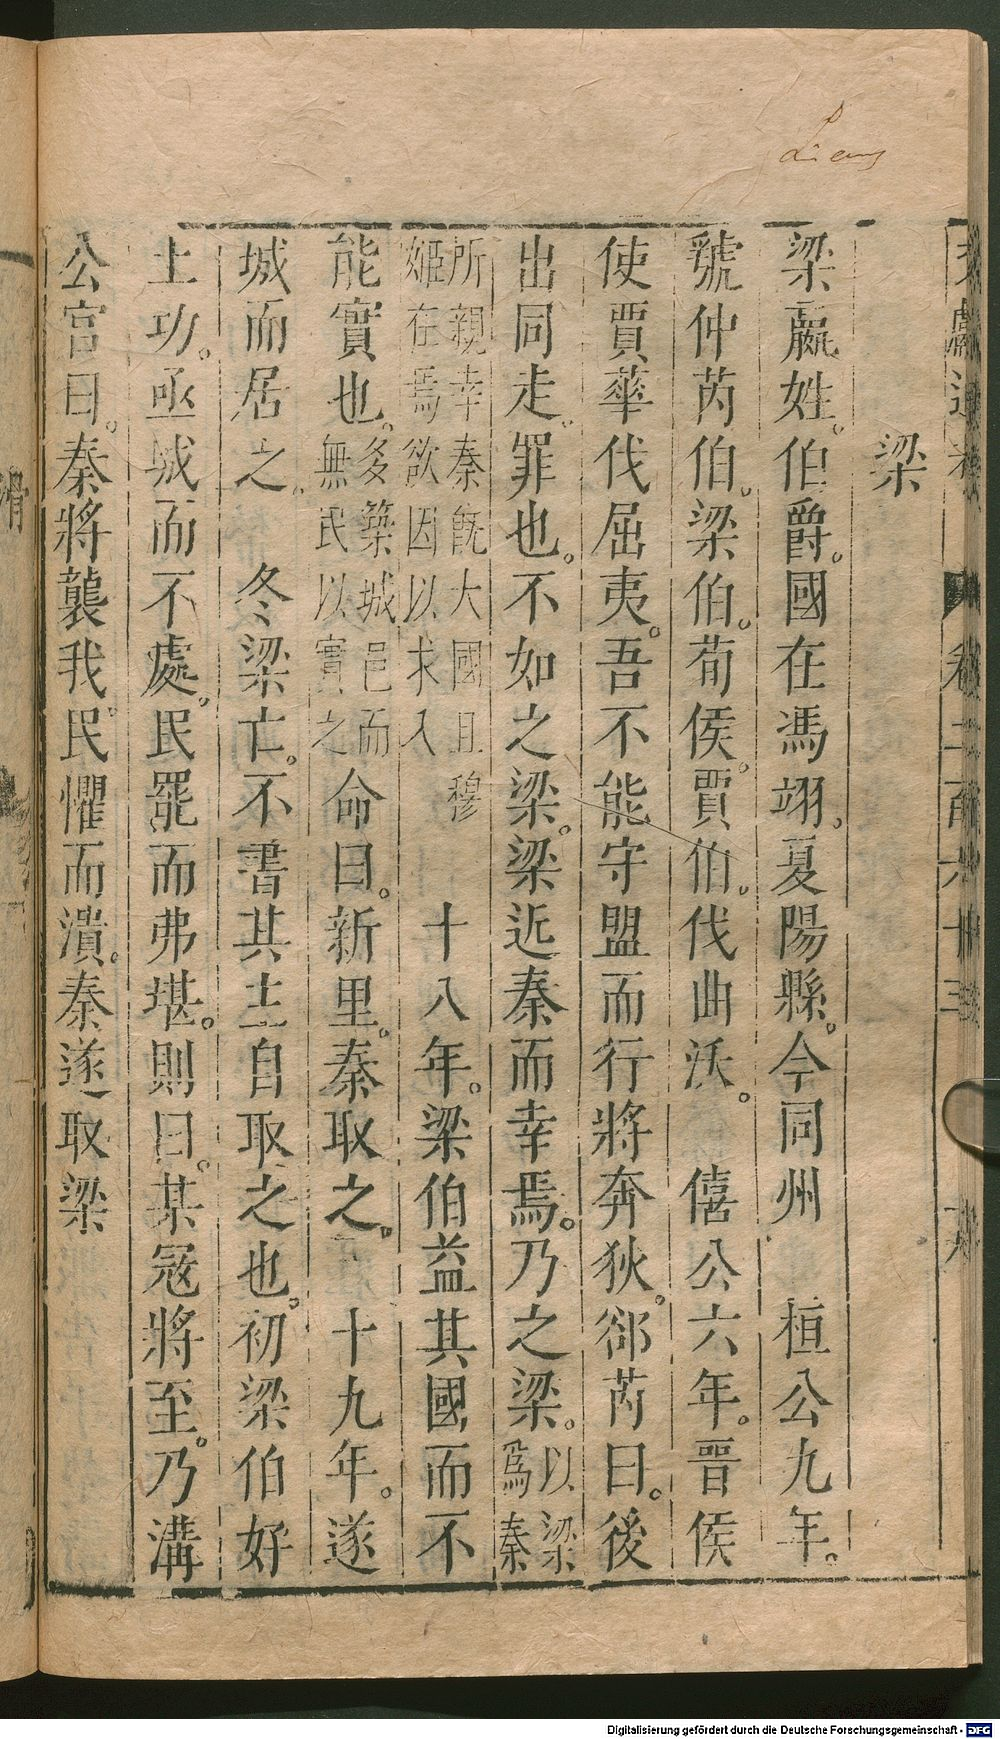 Liang
梁
梁嬴姓。伯爵。國在馮翊。夏陽縣。今同州　桓公九年。
虢仲芮伯。梁伯。荀侯。賈伯。伐曲沃。　僖公六年。晉侯
使賈華伐屈夷。吾不能守盟而行將奔狄。郤芮曰。後
出同走。罪也。不如之梁。梁近秦而幸焉。乃之梁。以梁爲秦
所親幸秦既大國且穆姬在焉欲因以求入　十八年。梁伯益其國而不
能實也。多築城邑而無民以實之命曰。新里。秦取之。　十九年。遂
城而居之。　冬梁亡。不書其主自取之也。初梁伯好
土功。亟城而不處。民罷而弗堪。則曰。某寇將至。乃溝
公宮曰。秦將襲我。民懼而潰。秦遂取梁
卷二百六十三
滑
Digitalisierung gefördert durch die Deutsche Forschungsgemeinschaft - DFG